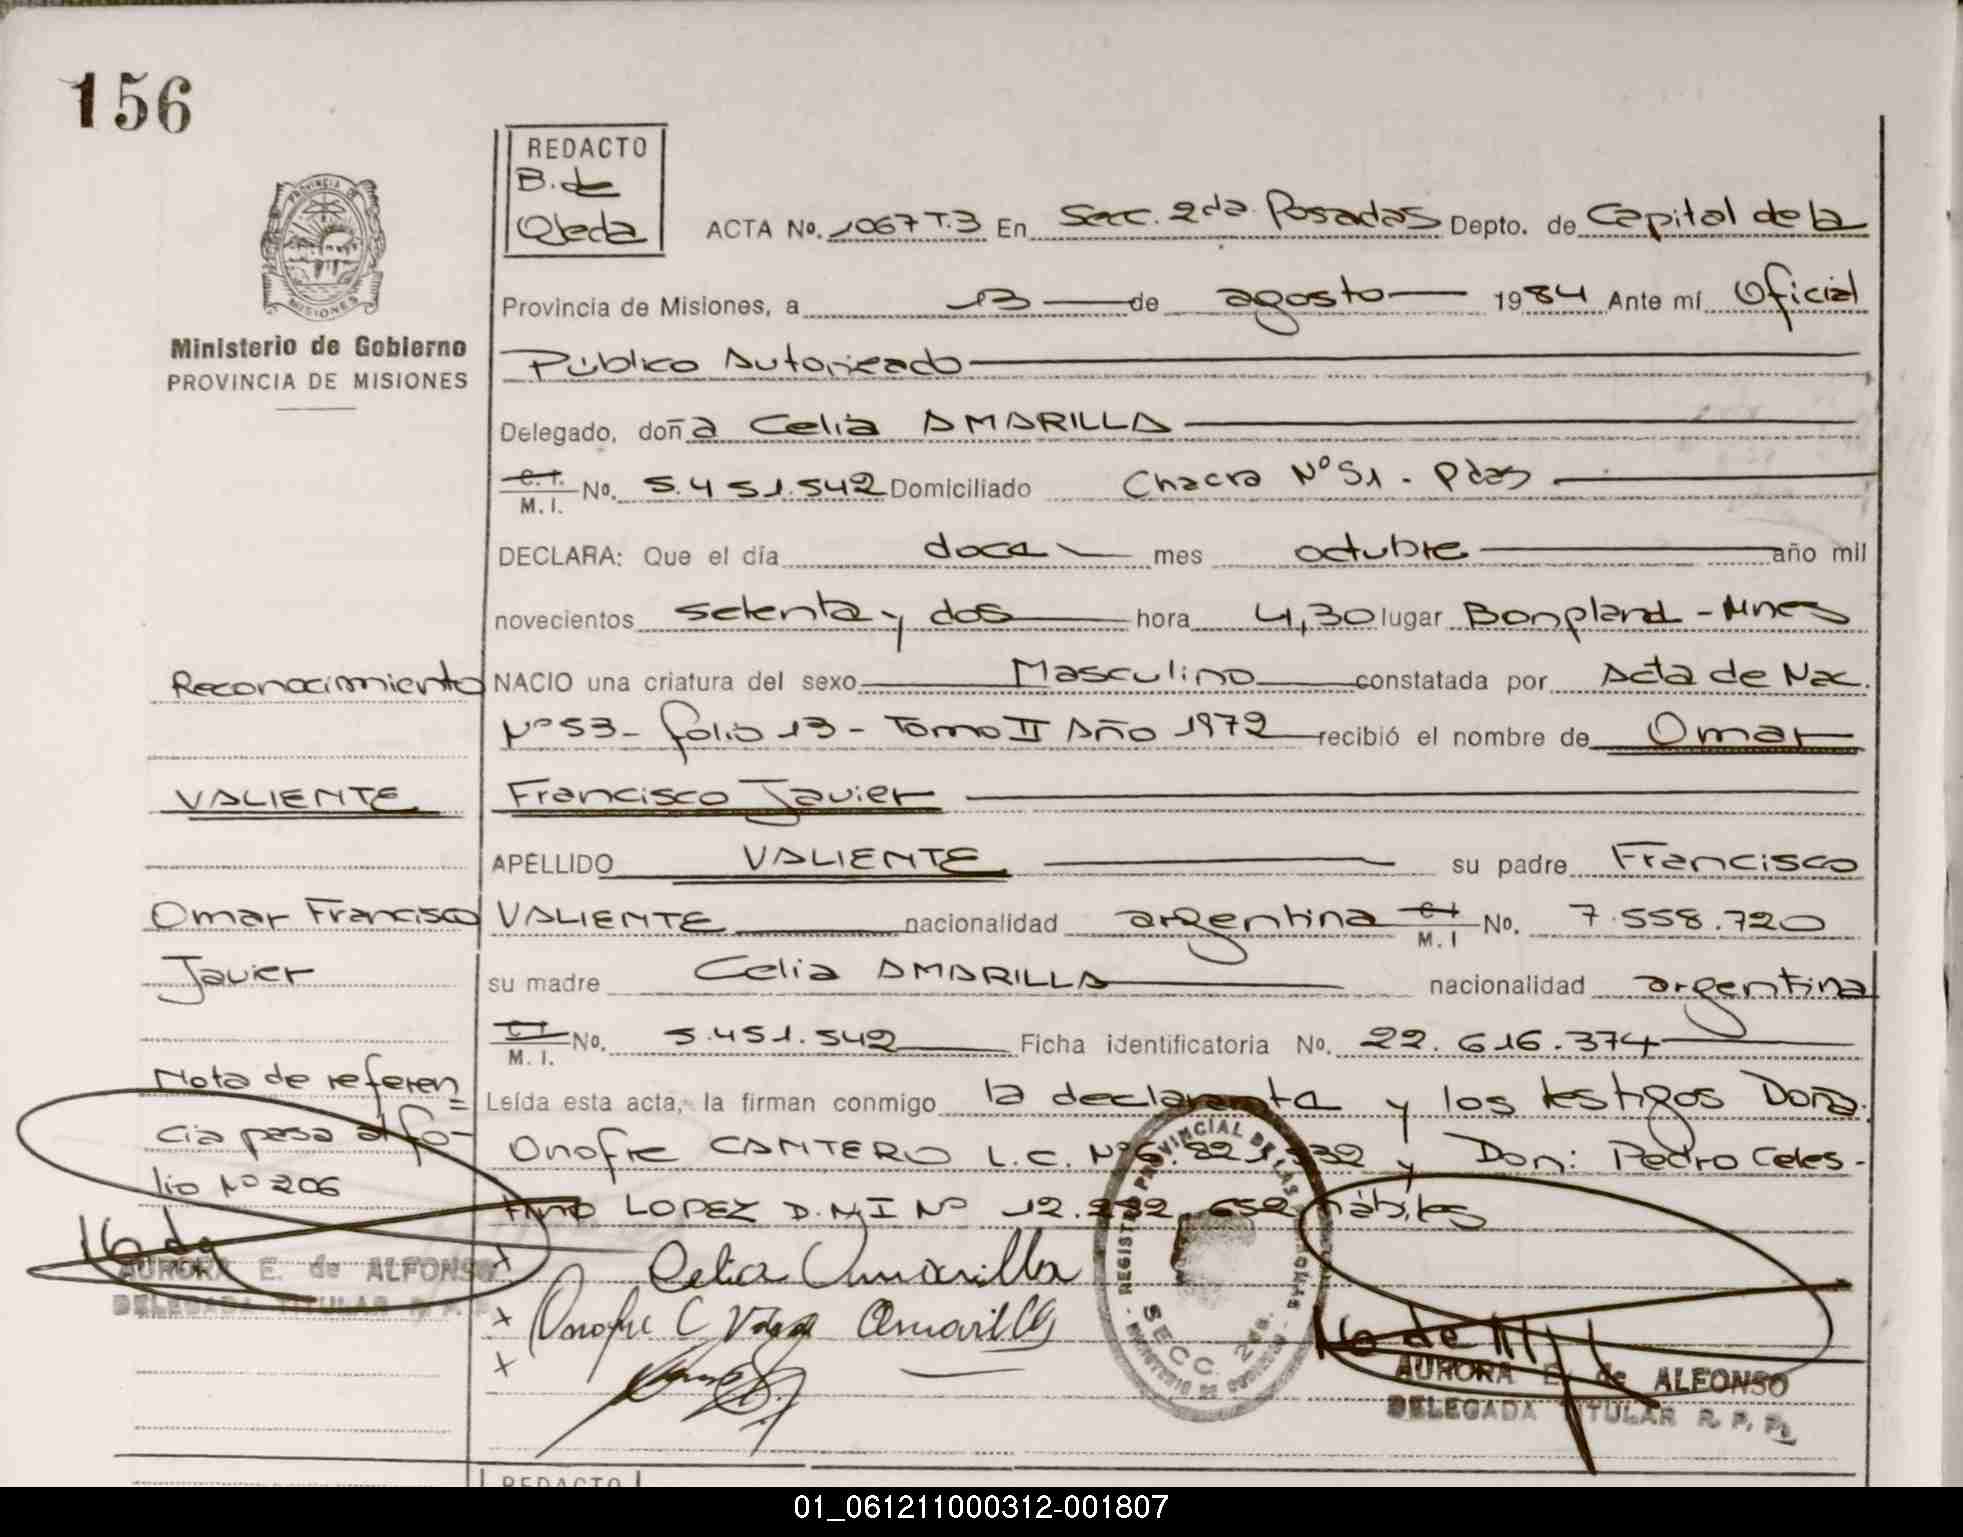 156
REDACTO
B. de
Ojeda
PROVINCIA DE
MISIONES
Ministerio de Gobierno
PROVINCIA DE MISIONES
ACTA No. 1067 T.3 En Secc. 2da. Posadas Depto. de Capital de la
Provincia de Misiones, a 13 de agosto 1984 Ante mí Oficial
Público Autorizado
Delegado, doña Celia AMARILLA
C.I. M. I. No. 5.451.542 Domiciliado Chacra Nº 51 - Pdas
DECLARA: Que el día doce mes octubre año mil
novecientos setenta y dos hora 4,30 lugar Bonpland - Mnes
Reconocimiento
NACIO una criatura del sexo Masculino constatada por Acta de Nac.
Nº 53 - folio 13 - Tomo II Año 1972 recibió el nombre de Omar
VALIENTE
Francisco Javier
APELLIDO VALIENTE su padre Francisco
Omar Francisco
VALIENTE nacionalidad argentina C.I M. I No. 7.558.720
Javier
su madre Celia AMARILLA nacionalidad argentina
C.I. M. I. No. 5.451.542 Ficha identificatoria No. 22.616.374
Nota de referen=
Leída esta acta, la firman conmigo la declaranta y los testigos Doña.
cia pasa al fo-
Onofre CANTERO L.C. Nº y Don: Pedro Celes-
lio Nº 206
tino LOPEZ D.N.I Nº hábiles
AURORA E. de ALFONSO
DELEGADA TITULAR R. P. P.
x Celia Amarilla
x Onofre C Amarilla
x
REGISTRO PROVINCIAL DE LAS
SECC. 2da.
AURORA E. de ALFONSO
DELEGADA TITULAR R. P. P.
REDACTO
01_061211000312-001807